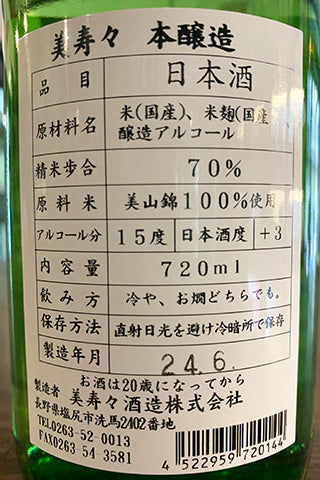 美寿々 本醸造
品目 日本酒
原材料名 米(国産)、米麹(国産
醸造アルコール
精米歩合 70%
原料米 美山錦100%使用
アルコール分 15度 日本酒度 +3
内容量 720ml
飲み方 冷や、お燗どちらでも。
保存方法 直射日光を避け冷暗所で保存
製造年月 24.6.
お酒は20歳になってから
製造者 美寿々酒造株式会社
長野県塩尻市洗馬2402番地
TEL0263-52-0013
FAX0263-54-3581
4522959720144